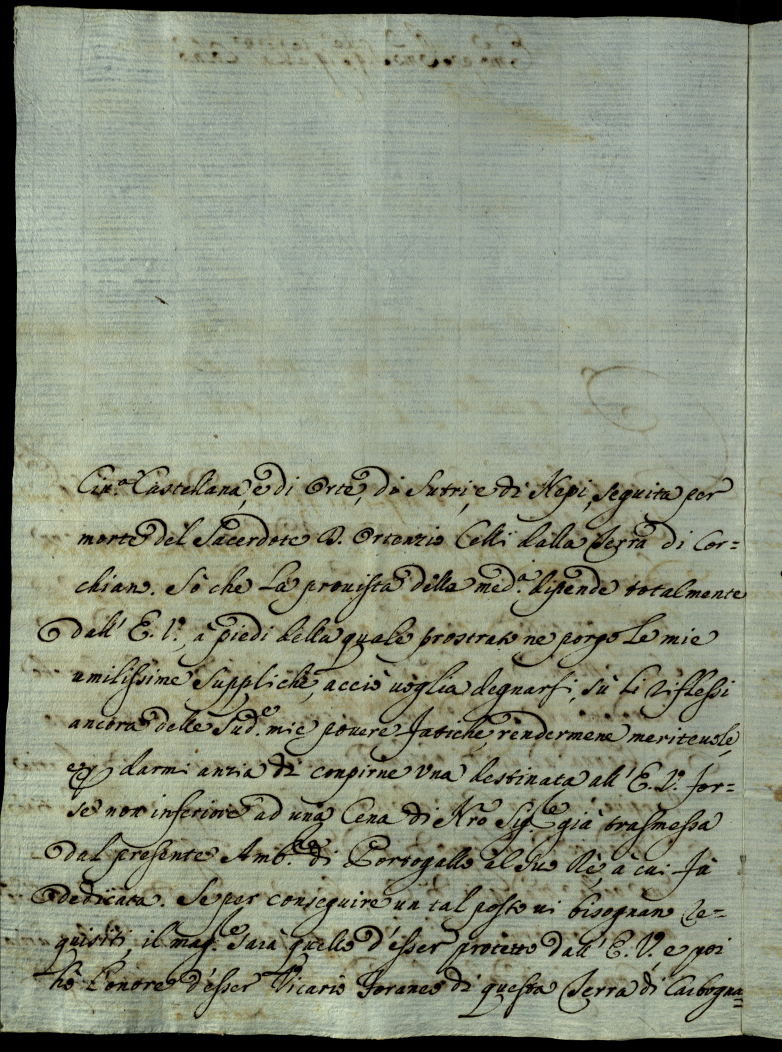 Civ.ª Castellana, e di Orte, di Sutri, e di Nepi, seguita per
morte del Sacerdote D. Ortenzio Celli dalla Terra di Cor=
chian. Sò che La provista della med.ª dipende totalmente
dall' E. V., a piedi della quale prostrato ne porgo Le mie
umilissime Suppliche, acciò voglia degnarsi, sù li riflessi
ancora delle Sud.e mie povere fatiche, rendermene meritevole,
et darmi anzia di compirne una destinata all' E. V. for-
se non inferiore ad una Cena di Nro Sig.e già trasmessa
dal presente Amb.re di Portogallo al Suo Rè, à cui fù
dedicata. Se per conseguire un tal posto vi bisognan re-
quisiti, il mag.e sarà quello d'esser protetto dall' E. V. e poi
hò L'onore d'esser Vicario Foraneo di questa Terra di Carbogna=